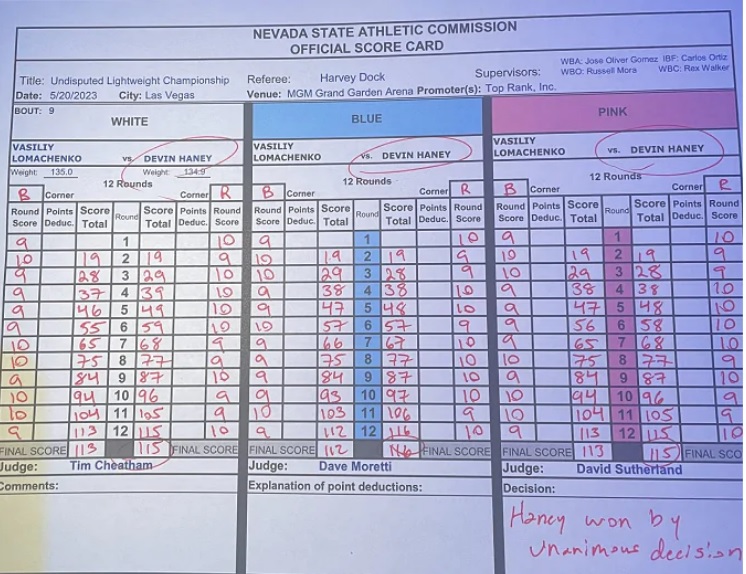 NEVADA STATE ATHLETIC COMMISSION
OFFICIAL SCORE CARD
Title: Undisputed Lightweight Championship Referee: Harvey Dock Supervisors: WBA: Jose Oliver Gomez IBF: Carlos Ortiz
WBO: Russell Mora WBC: Rex Walker
Date: 5/20/2023 City: Las Vegas Venue: MGM Grand Garden Arena Promoter(s): Top Rank, Inc.
BOUT: 9
WHITE BLUE PINK
VASILIY LOMACHENKO vs. DEVIN HANEY VASILIY LOMACHENKO vs. DEVIN HANEY VASILIY LOMACHENKO vs. DEVIN HANEY
Weight: 135.0 Weight: 134.9
12 Rounds 12 Rounds 12 Rounds
B Corner Corner R B Corner Corner R B Corner Corner R
Round Score Points Deduc. Score Total Round Score Total Points Deduc. Round Score Round Score Points Deduc. Score Total Round Score Total Points Deduc. Round Score Round Score Points Deduc. Score Total Round Score Total Points Deduc. Round Score
9 1 10 9 1 10 9 1 10
10 19 2 19 9 10 19 2 19 9 10 19 2 19 9
9 28 3 29 10 10 29 3 28 9 10 29 3 28 9
9 37 4 39 10 9 38 4 38 10 9 38 4 38 10
9 46 5 49 10 9 47 5 48 10 9 47 5 48 10
9 55 6 59 10 10 57 6 57 9 9 56 6 58 10
10 65 7 68 9 9 66 7 67 10 9 65 7 68 10
10 75 8 77 9 9 75 8 77 10 10 75 8 77 9
9 84 9 87 10 9 84 9 87 10 9 84 9 87 10
10 94 10 96 9 9 93 10 97 10 10 94 10 96 9
10 104 11 105 9 10 103 11 106 9 10 104 11 105 9
9 113 12 115 10 9 112 12 116 10 9 113 12 115 10
FINAL SCORE 113 115 FINAL SCORE FINAL SCORE 112 116 FINAL SCORE FINAL SCORE 113 115 FINAL SCO
Judge: Tim Cheatham Judge: Dave Moretti Judge: David Sutherland
Comments: Explanation of point deductions: Decision:
Haney won by
unanimous decision